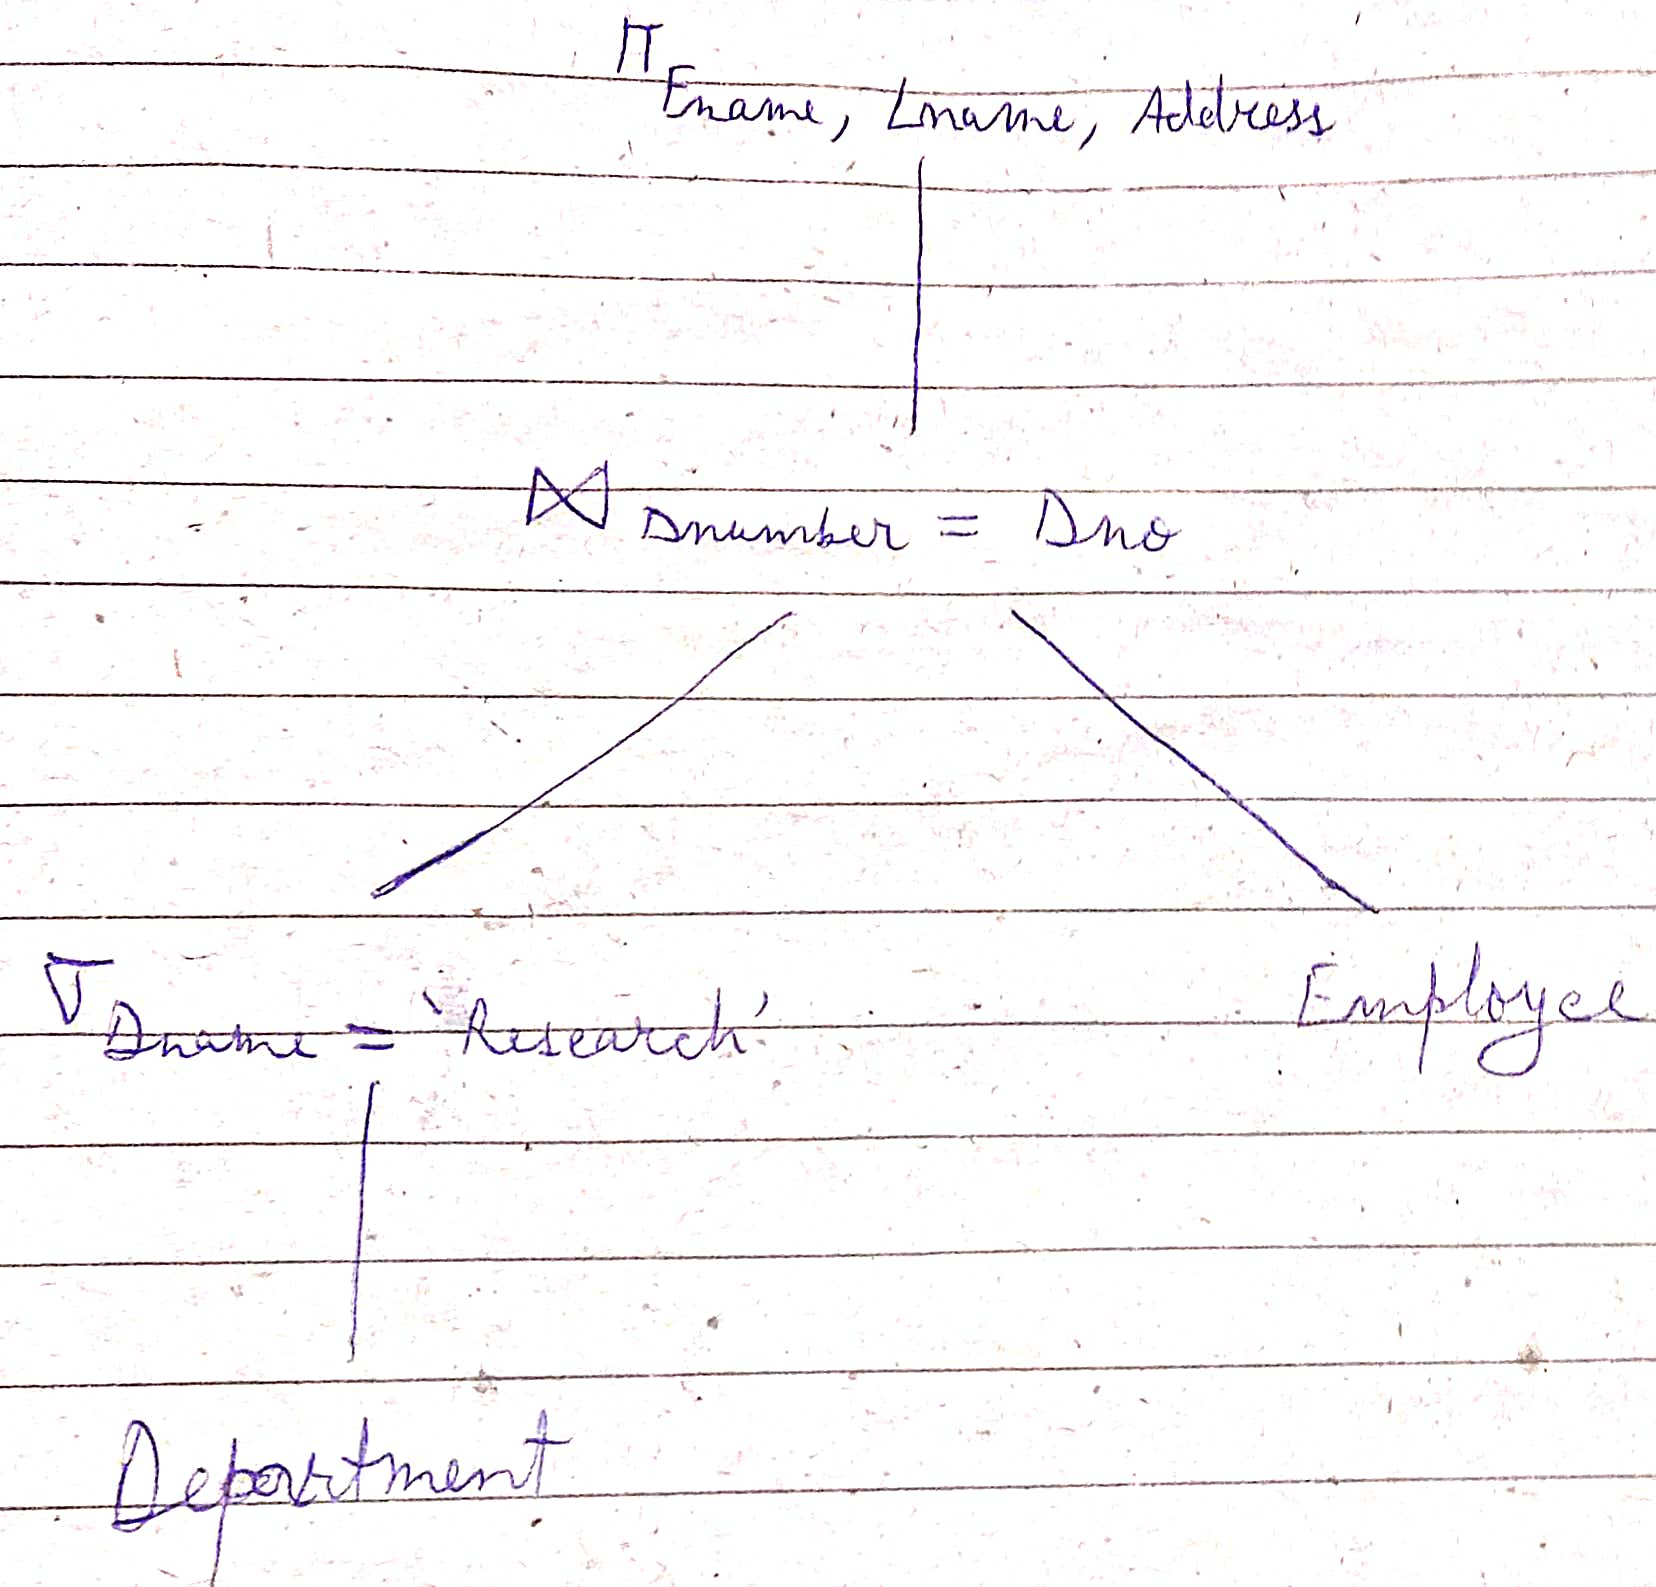 π Ename, Lname, Address
⋈ Dnumber = Dno
σ Dname = 'Research'
Employee
Department